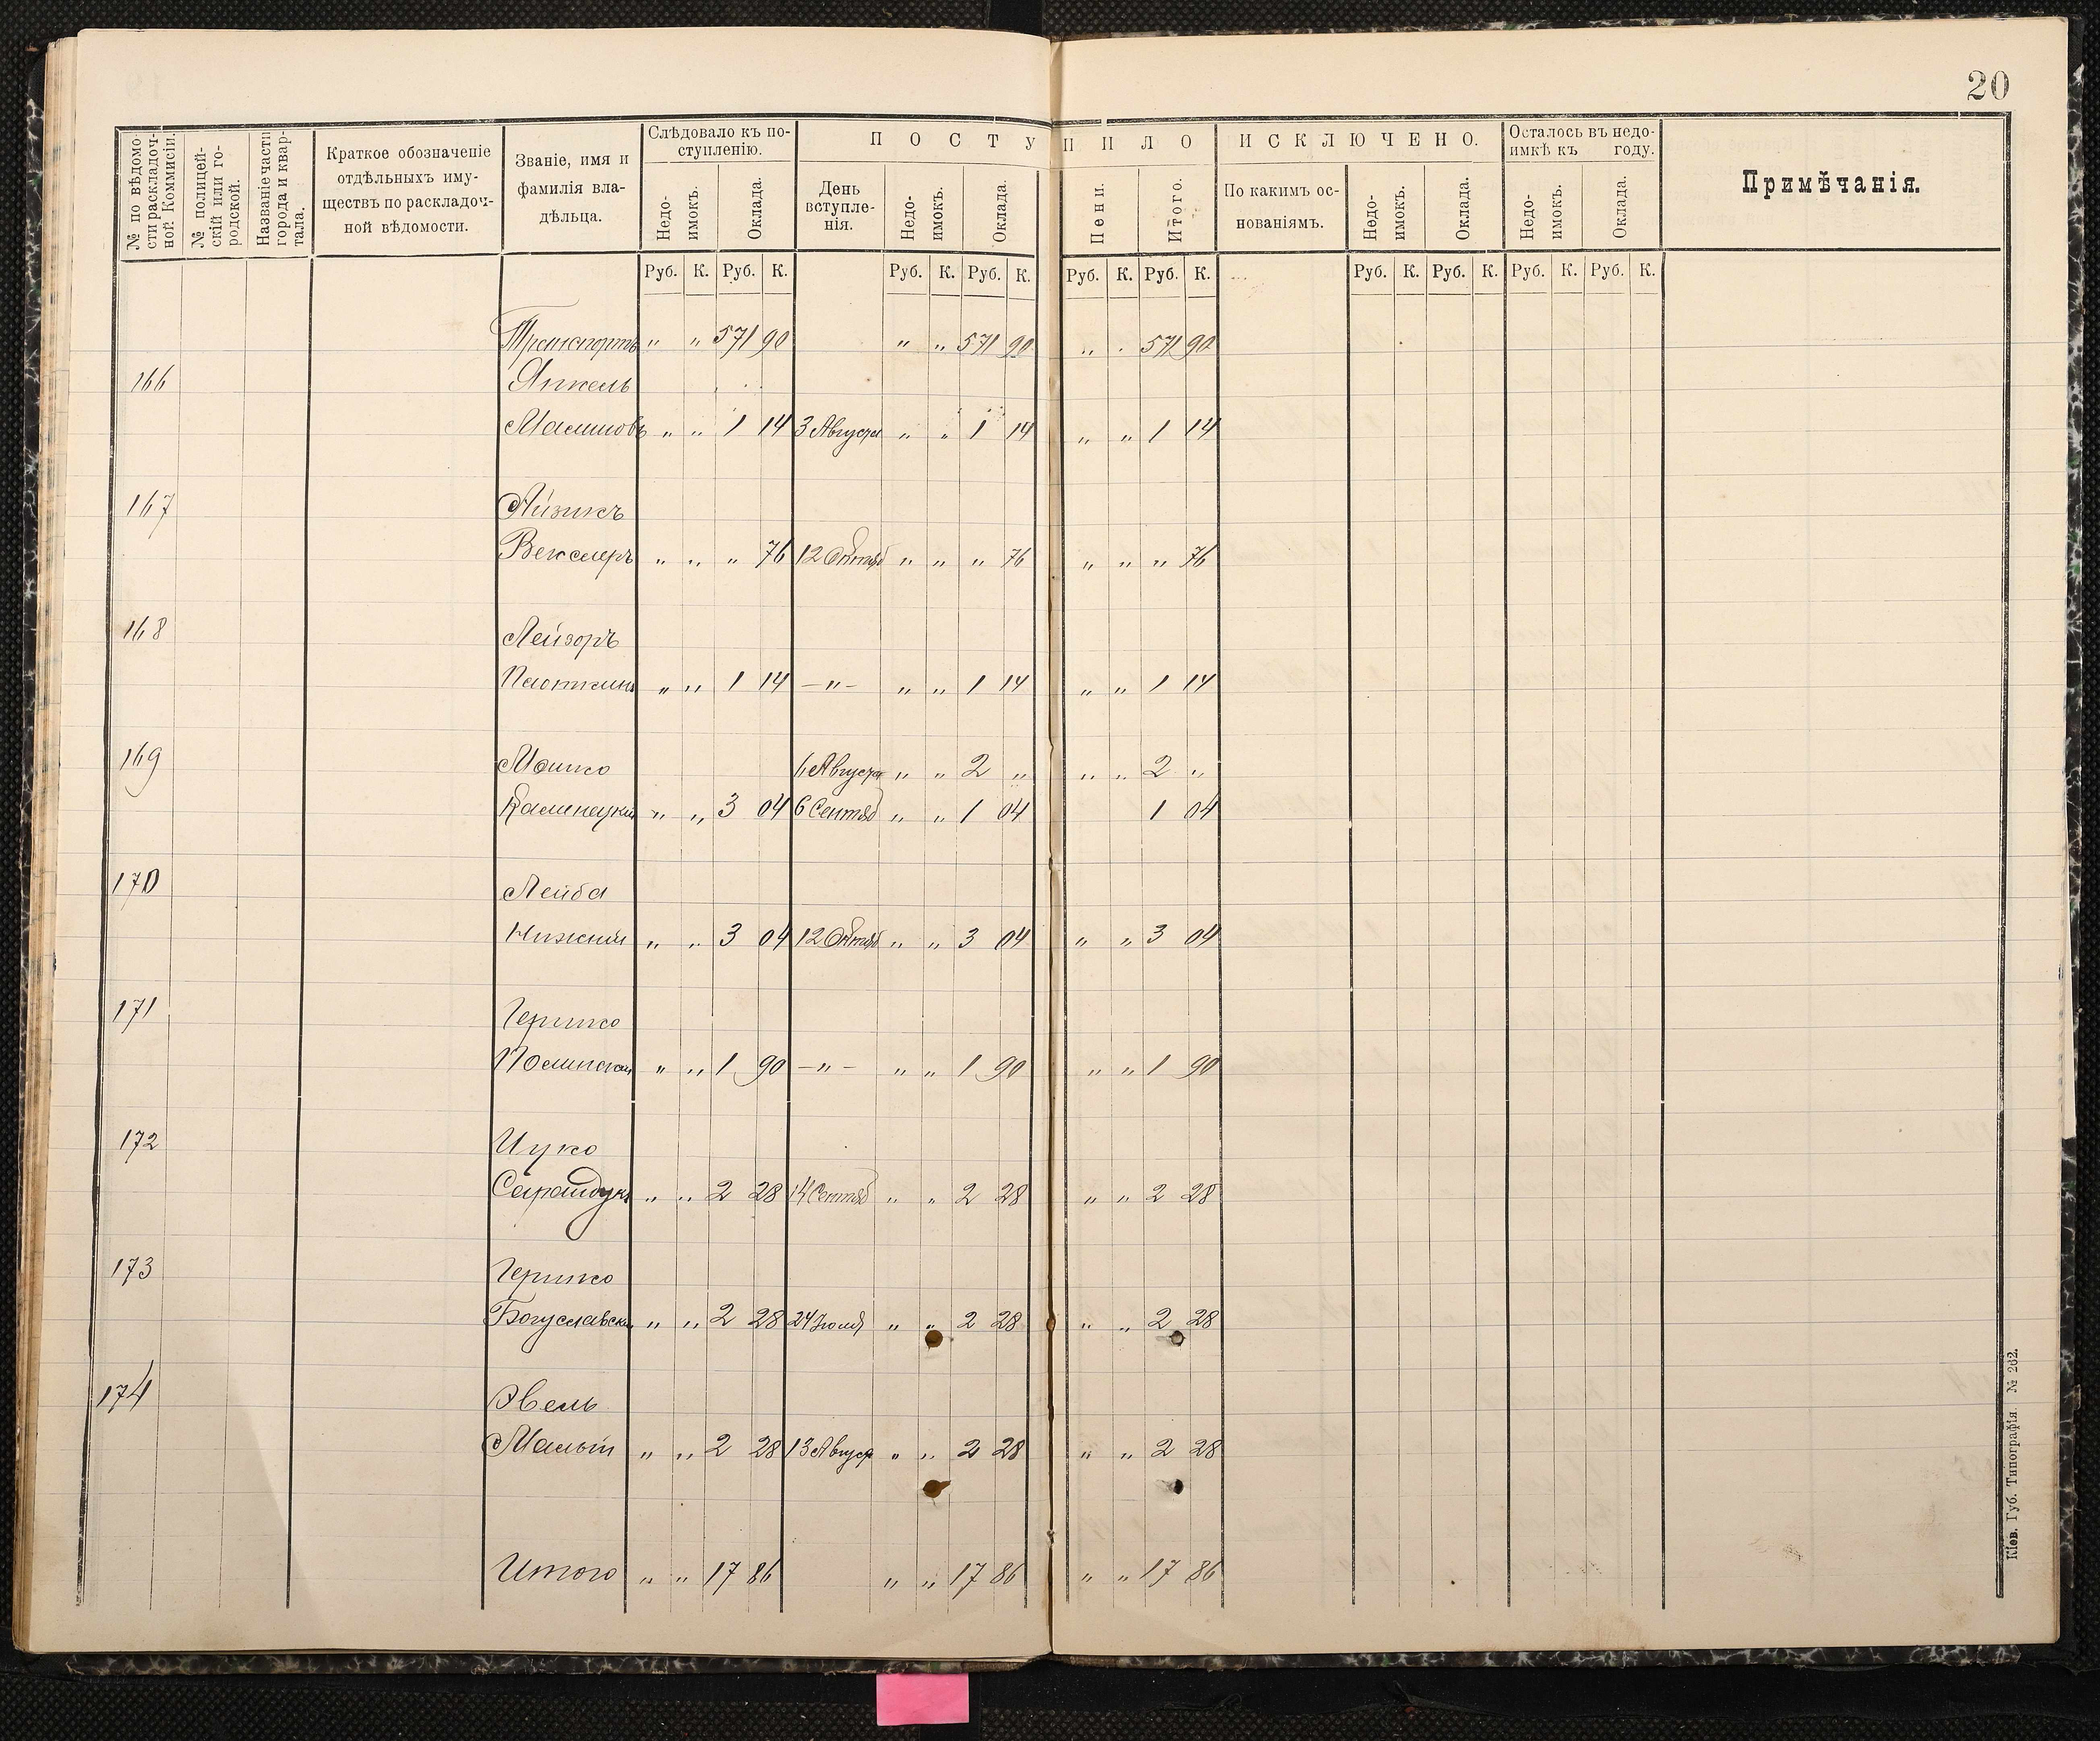 20
№ по вѣдомо-
сти раскладоч-
ной Коммисіи.
№ полицей-
скій или го-
родской.
Названіе части
города и квар-
тала.
Краткое обозначеніе
отдѣльныхъ иму-
ществъ по раскладоч-
ной вѣдомости.
Званіе, имя и
фамилія вла-
дѣльца.
Слѣдовало къ по-
ступленію.
Недо-
имокъ.
Оклада.
ПОСТУПИЛО
День
вступле-
нія.
Недо-
имокъ.
Оклада.
Пени.
Итого.
ИСКЛЮЧЕНО.
По какимъ ос-
нованіямъ.
Недо-
имокъ.
Оклада.
Осталось въ недо-
имкѣ къ году.
Недо-
имокъ.
Оклада.
Примѣчанія.
Руб. К. Руб. К. Руб. К. Руб. К. Руб. К. Руб. К. Руб. К. Руб. К. Руб. К. Руб. К.
Транспортъ " " 571 90 " " 571 90 " " 571 90
166 Янкель
" " 1 14 3 Августа " " 1 14 " " 1 14
167 Айзикъ
Векслеръ " " " 76 12 Октяб " " " 76 " " " 76
168 Лейзоръ
Плоткинъ " " 1 14 —"— " " 1 14 " " 1 14
169 Мошко 6 Августа " " 2 " " " 2 "
Каменецкій " " 3 04 6 Сентяб " " 1 04 1 04
170 Лейба
Нижній " " 3 04 12 Октяб " " 3 04 " " 3 04
171 Гершко
" " 1 90 —"— " " 1 90 " " 1 90
172 Ицко
" " 2 28 14 Сентяб " " 2 28 " " 2 28
173 Гершко
Богуславскій " " 2 28 24 Іюля " " 2 28 " " 2 28
174 Эвель
Малый " " 2 28 13 Август " " 2 28 " " 2 28
Итого " " 17 86 " " 17 86 " " 17 86
Кіев. Губ. Типографія. № 262.